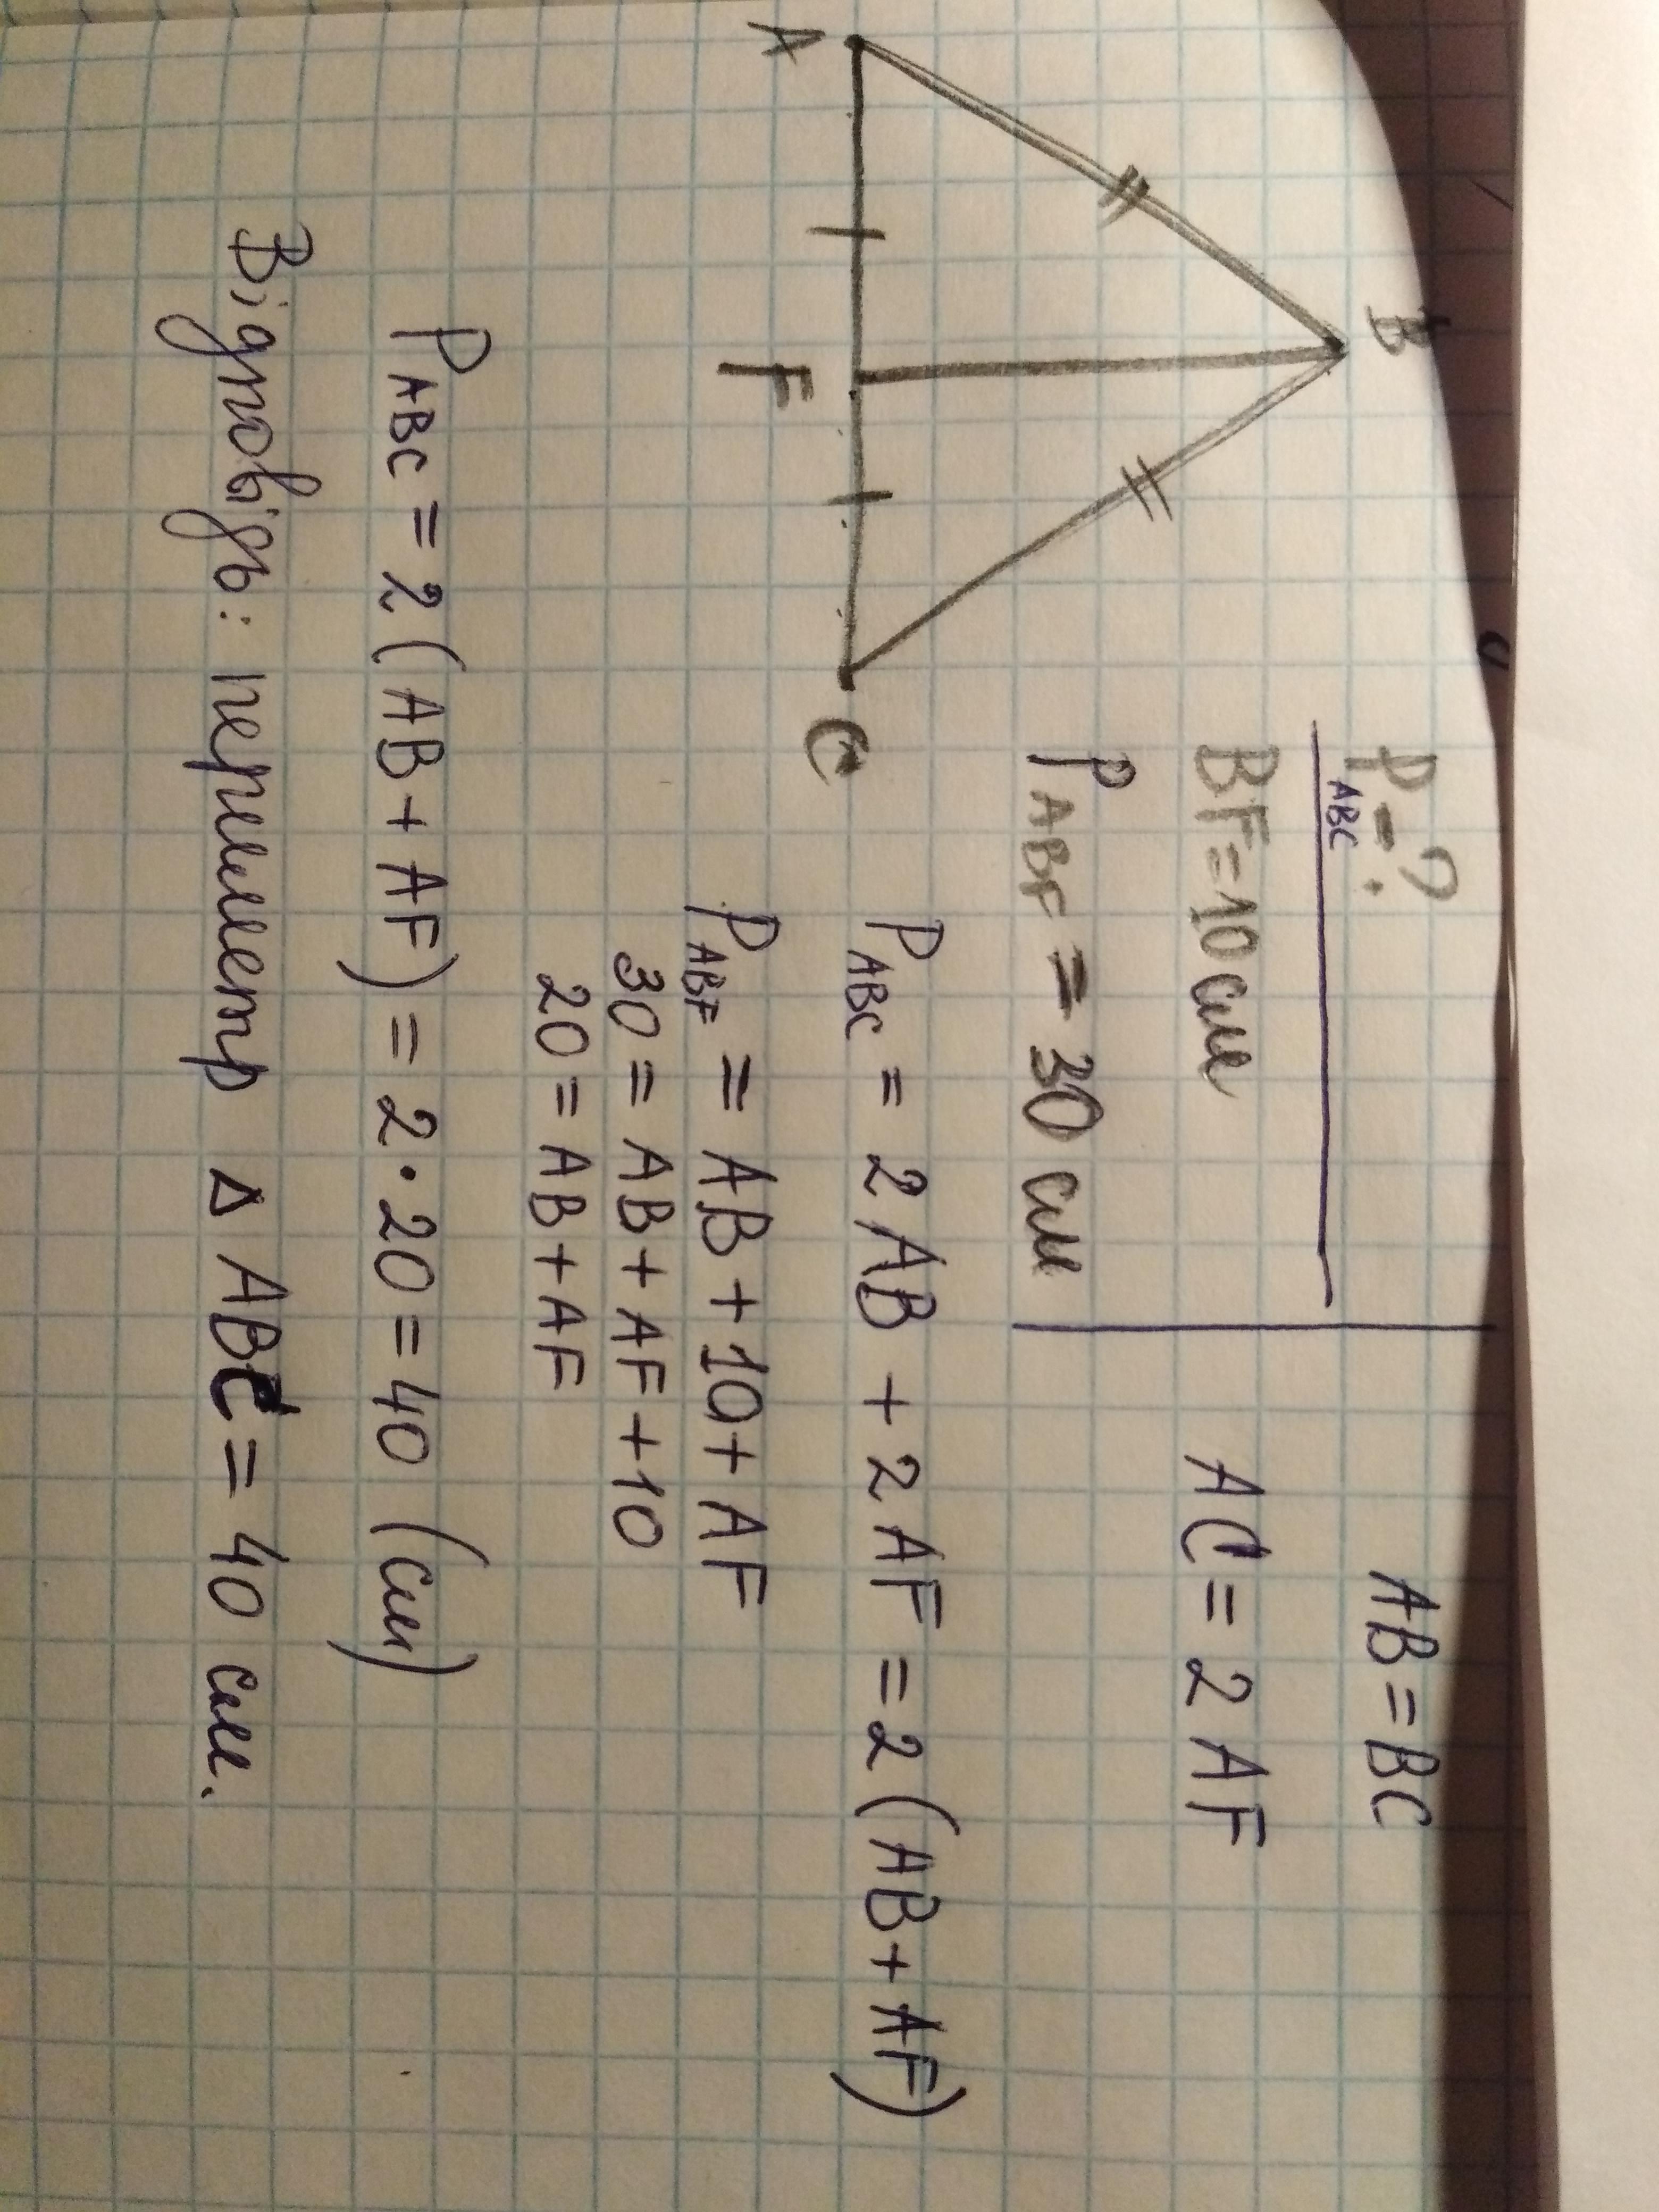 B
A
F
C
P = ?
ABC
BF = 10 см
P ABF = 30 см
AB = BC
AC = 2 AF
P ABC = 2 AB + 2 AF = 2 (AB + AF)
P ABF = AB + 10 + AF
30 = AB + AF + 10
20 = AB + AF
P ABC = 2 (AB + AF) = 2 · 20 = 40 (см)
Відповідь: периметр Δ ABC = 40 см.